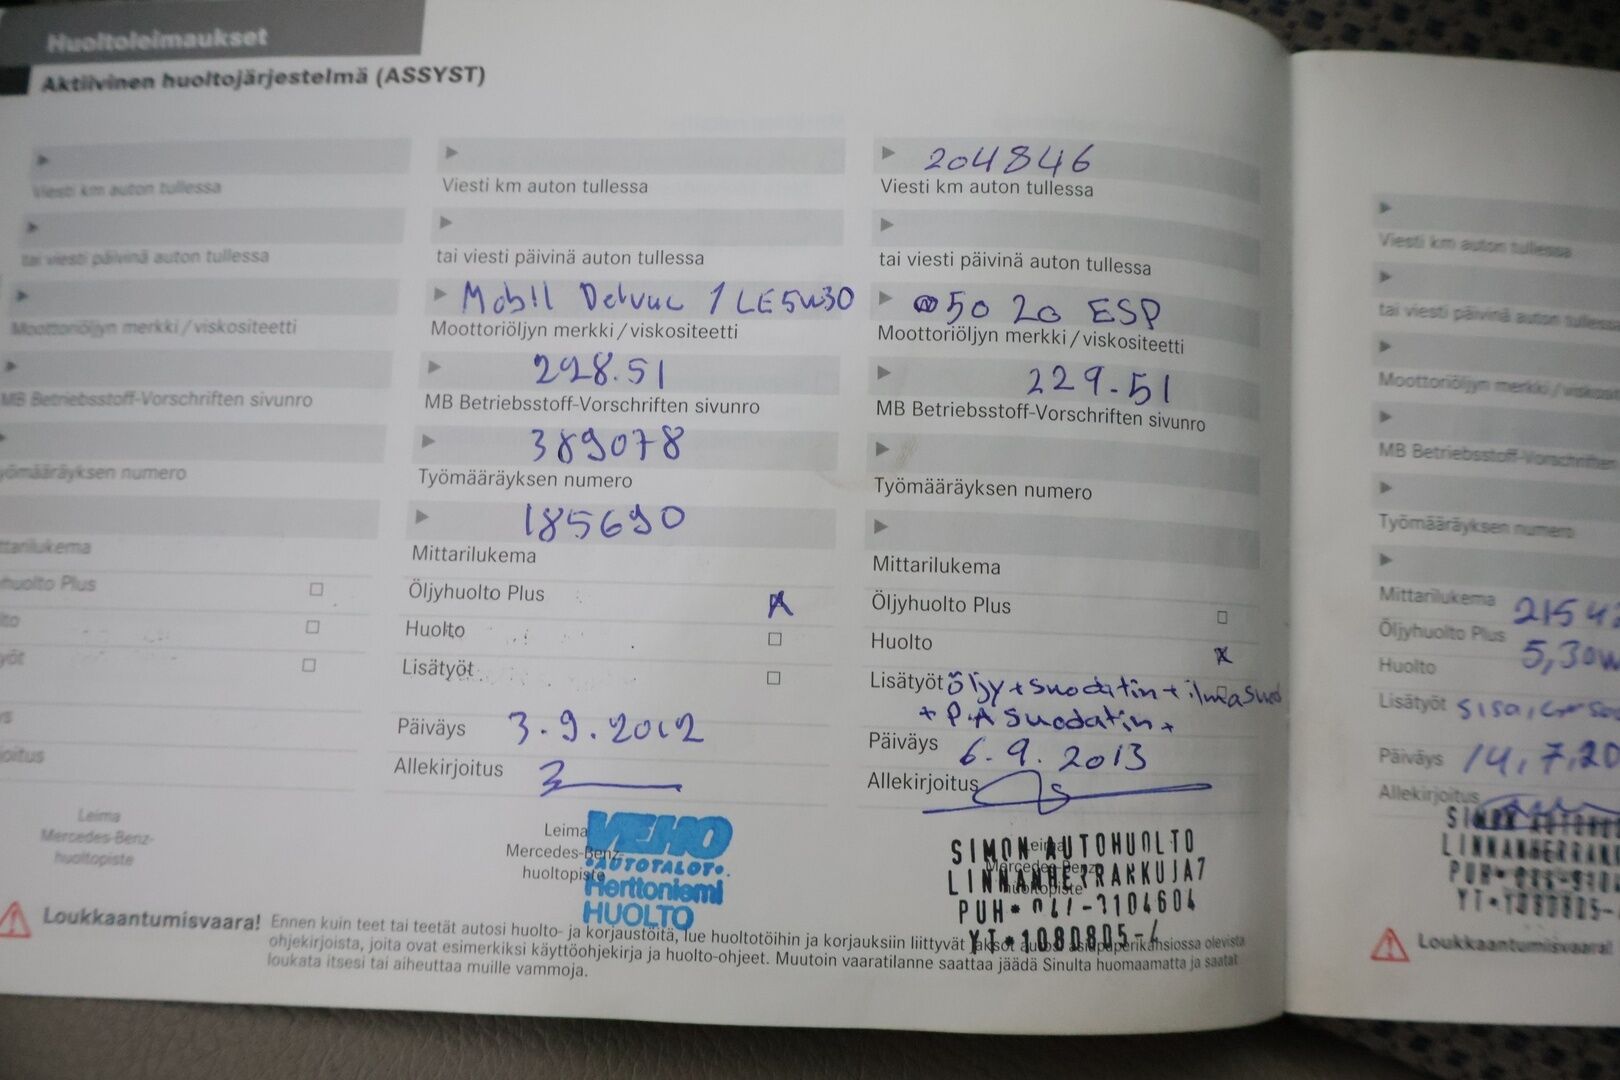 Huoltoleimaukset
Aktiivinen huoltojärjestelmä (ASSYST)
Viesti km auton tullessa
tai viesti päivinä auton tullessa
Moottoriöljyn merkki / viskositeetti
MB Betriebsstoff-Vorschriften sivunro
yömääräyksen numero
ttarilukema
huolto Plus
lto
työt
ys
joitus
Leima
Mercedes-Benz-
huoltopiste
Viesti km auton tullessa
tai viesti päivinä auton tullessa
Mobil Delvac 1 LE 5w30
Moottoriöljyn merkki / viskositeetti
228.51
MB Betriebsstoff-Vorschriften sivunro
389078
Työmääräyksen numero
185690
Mittarilukema
Öljyhuolto Plus X
Huolto
Lisätyöt
Päiväys 3.9.2012
Allekirjoitus
Leima
Mercedes-Benz-
huoltopiste
VEHO
AUTOTALOT
Herttoniemi
HUOLTO
204846
Viesti km auton tullessa
tai viesti päivinä auton tullessa
5020 ESP
Moottoriöljyn merkki / viskositeetti
229.51
MB Betriebsstoff-Vorschriften sivunro
Työmääräyksen numero
Mittarilukema
Öljyhuolto Plus
Huolto X
Lisätyöt Öljy + suodatin + ilmasuod
+ P.A suodatin +
Päiväys 6.9.2013
Allekirjoitus
Leima
Mercedes-Benz-
huoltopiste
SIMON AUTOHUOLTO
LINNANHERRANKUJA7
YT*1080805-4
Loukkaantumisvaara! Ennen kuin teet tai teetät autosi huolto- ja korjaustöitä, lue huoltotöihin ja korjauksiin liittyvät jaksot autosi asiapaperikansiossa olevista
ohjekirjoista, joita ovat esimerkiksi käyttöohjekirja ja huolto-ohjeet. Muutoin vaaratilanne saattaa jäädä Sinulta huomaamatta ja saatat
loukata itsesi tai aiheuttaa muille vammoja.
Viesti km auton tullessa
tai viesti päivinä auton tullessa
Moottoriöljyn merkki / viskosit
MB Betriebsstoff-Vorschriften
Työmääräyksen numero
Mittarilukema 2154
Öljyhuolto Plus 5,30w
Huolto
Lisätyöt
Päiväys 14,7,20
Allekirjoitus
SIMON AUTOHU
LINNANHERRANKU
YT*1080805-
Loukkaantumisvaara!